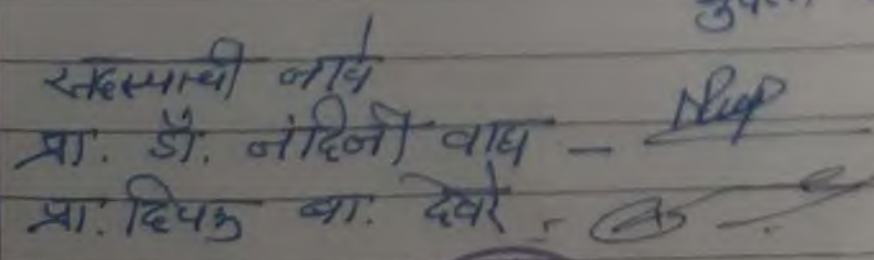 सदस्याची नावे
प्रा. डॉ. नंदिनी वाघ -
प्रा. दिपक बा. देवरे -